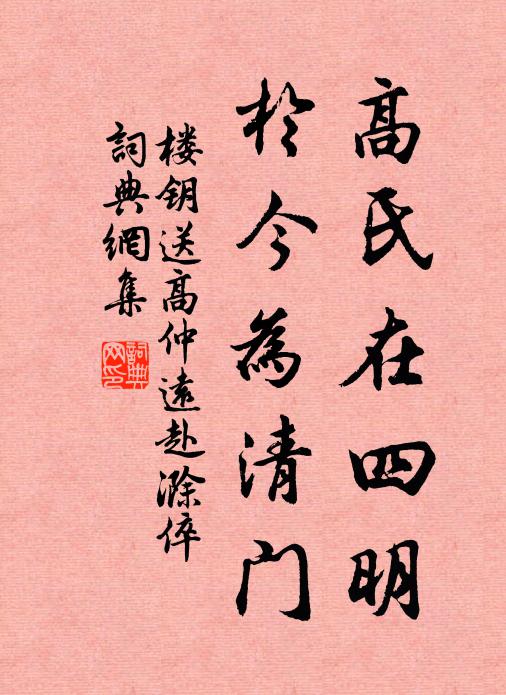 高氏在四明
於今為清门
楼钥送高仲遠赴滁倅
詞典網集
詞典网印